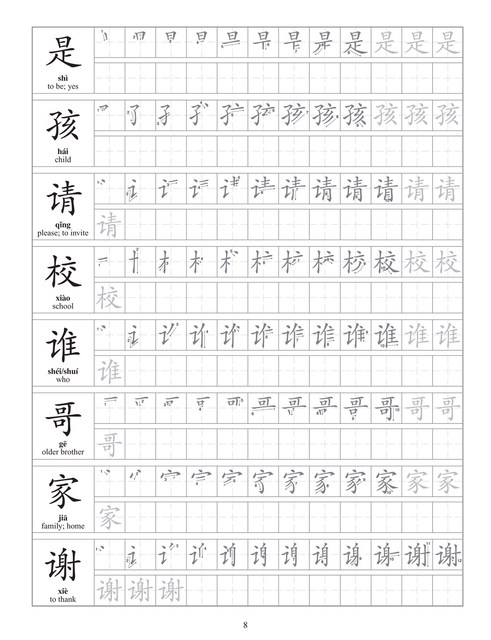 是
shì
to be; yes
是 是 是
孩
hái
child
孩 孩 孩 孩
请
qǐng
please; to invite
请 请 请
请
校
xiào
school
校 校 校
校
谁
shéi/shuí
who
谁 谁 谁
谁
哥
gē
older brother
哥 哥 哥
哥
家
jiā
family; home
家 家 家
家
谢
xiè
to thank
谢
谢 谢 谢
8